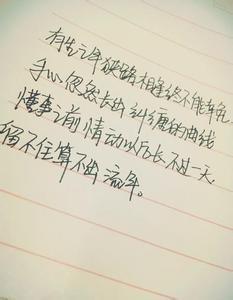 有生之年狭路相逢终不能幸免
手心忽然长出纠缠的曲线
懂事之前情动以后长不过一天
留不住算不出流年。